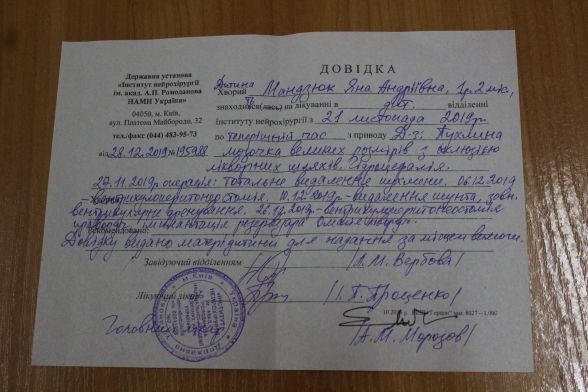 ДОВІДКА
Державна установа
«Інститут нейрохірургії
ім. акад. А.П. Ромоданова
НАМН України»
04050, м. Київ,
вул. Платона Майбороди, 32
тел./факс (044) 483-95-73
від 28.12.2019р № 195988
Дитина
Хворий Мандзюк Яна Андріївна, 1р. 2 міс,
знаходився(лась) на лікуванні в дит. відділенні
Інституту нейрохірургії з 21 листопада 2019р.
по теперішній час з приводу Д-з: Пухлина
мозочка великих розмірів з оклюзією
лікворних шляхів. Гідроцефалія.
27.11.2019р операція: тотальне видалення пухлини, 06.12.2019
вентрикулоперитонеостомія, 10.12.2019р - видалення шунта, зовн.
вентрикулярне дренування. 26.12.2019р - вентрикулоперитонеостомія
імплантація резервуара Оммайя
рекомендовано:
Довідку видано матері дитини для надання за місцем вимоги.
Завідуючий відділенням /Л.М. Вербова/
Лікуючий лікар /П. Проценко/
Головний лікар /А.М. Морозов/